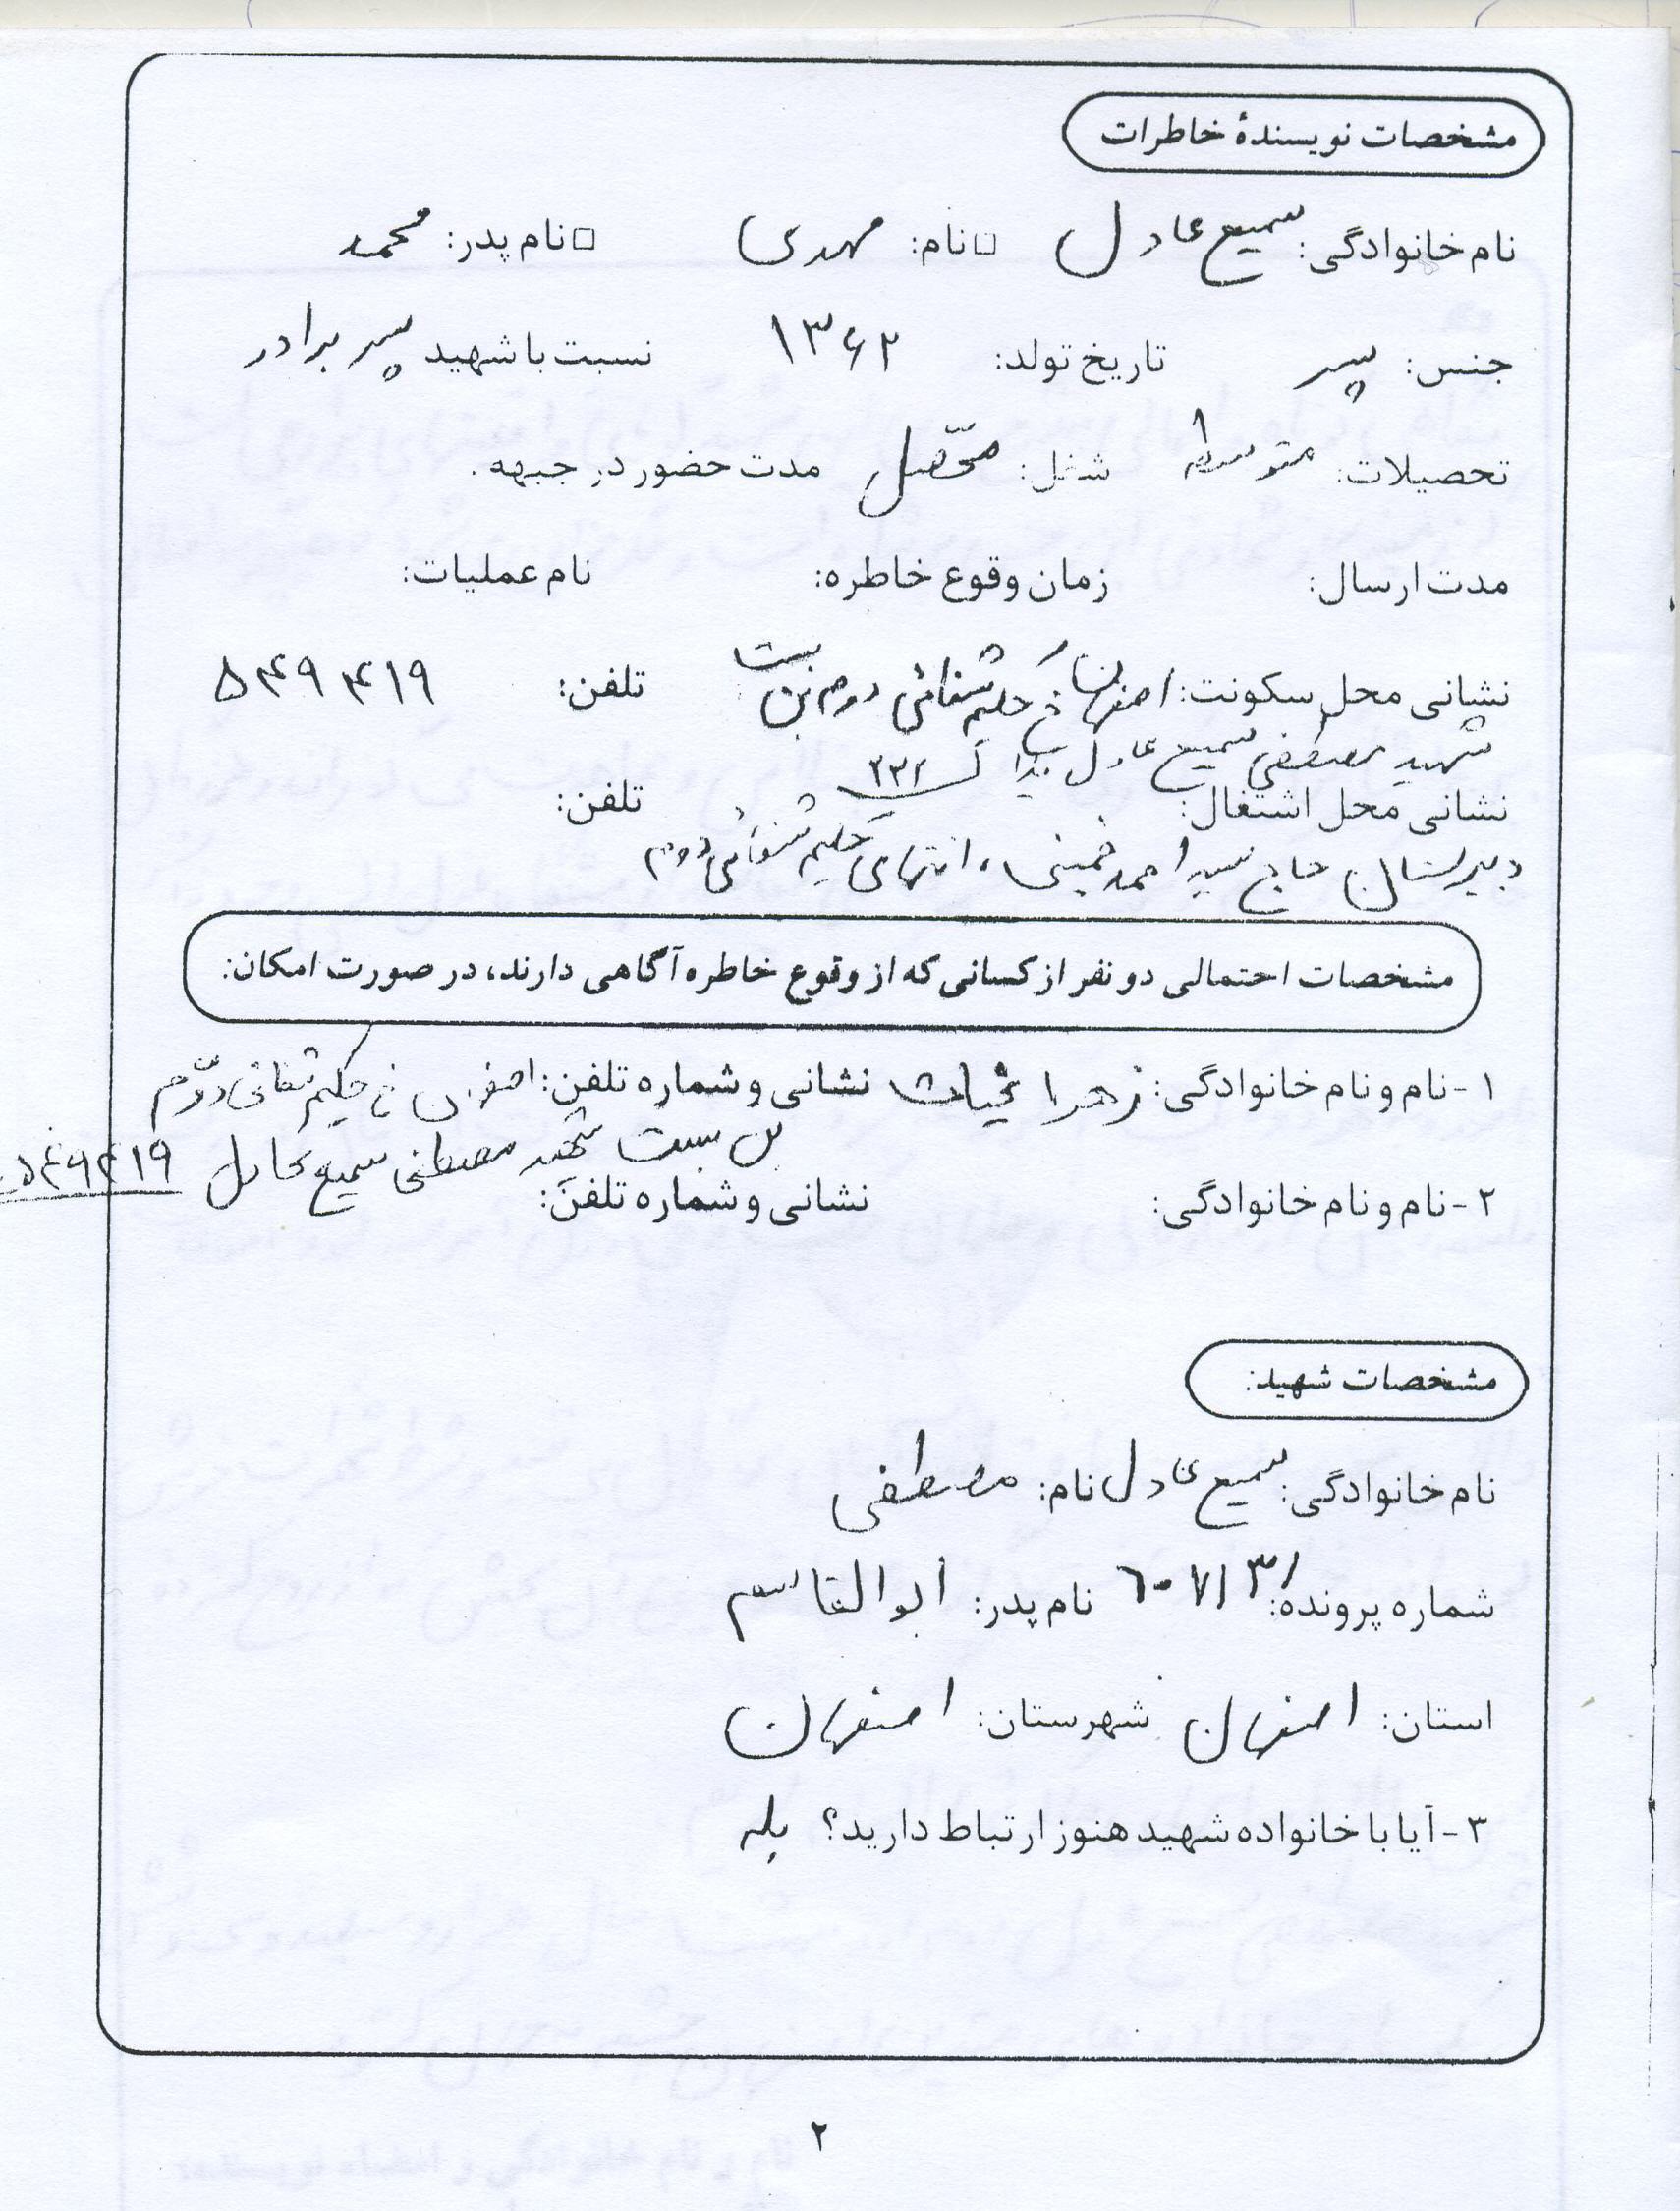 مشخصات نویسندهٔ خاطرات
نام خانوادگی: سمیع عادل □نام: مهدی □نام پدر: محمد
جنس: پسر تاریخ تولد: ۱۳۶۲ نسبت با شهید پسر برادر
تحصیلات: متوسطه شغل: محصّل مدت حضور در جبهه.
مدت ارسال: زمان وقوع خاطره: نام عملیات:
نشانی محل سکونت: اصفهان خ حکیم شفائی دوم بن بست تلفن: ۵۴۹۴۱۹
شهید مصطفی سمیع عادل پلاک ۲۳۲
نشانی محل اشتغال: تلفن:
دبیرستان حاج سید احمد خمینی، انتهای حکیم شفائی دوم
مشخصات احتمالی دو نفر از کسانی که از وقوع خاطره آگاهی دارند، در صورت امکان:
۱- نام و نام خانوادگی: زهرا نشانی و شماره تلفن: اصفهان خ حکیم شفائی دوّم
بن بست شهید مصطفی سمیع عادل ۵۴۹۴۱۹
۲- نام و نام خانوادگی: نشانی و شماره تلفن:
مشخصات شهید:
نام خانوادگی: سمیع عادل نام: مصطفی
شماره پرونده: نام پدر: ابوالقاسم
استان: اصفهان شهرستان: اصفهان
۳- آیا با خانواده شهید هنوز ارتباط دارید؟ بله
۲